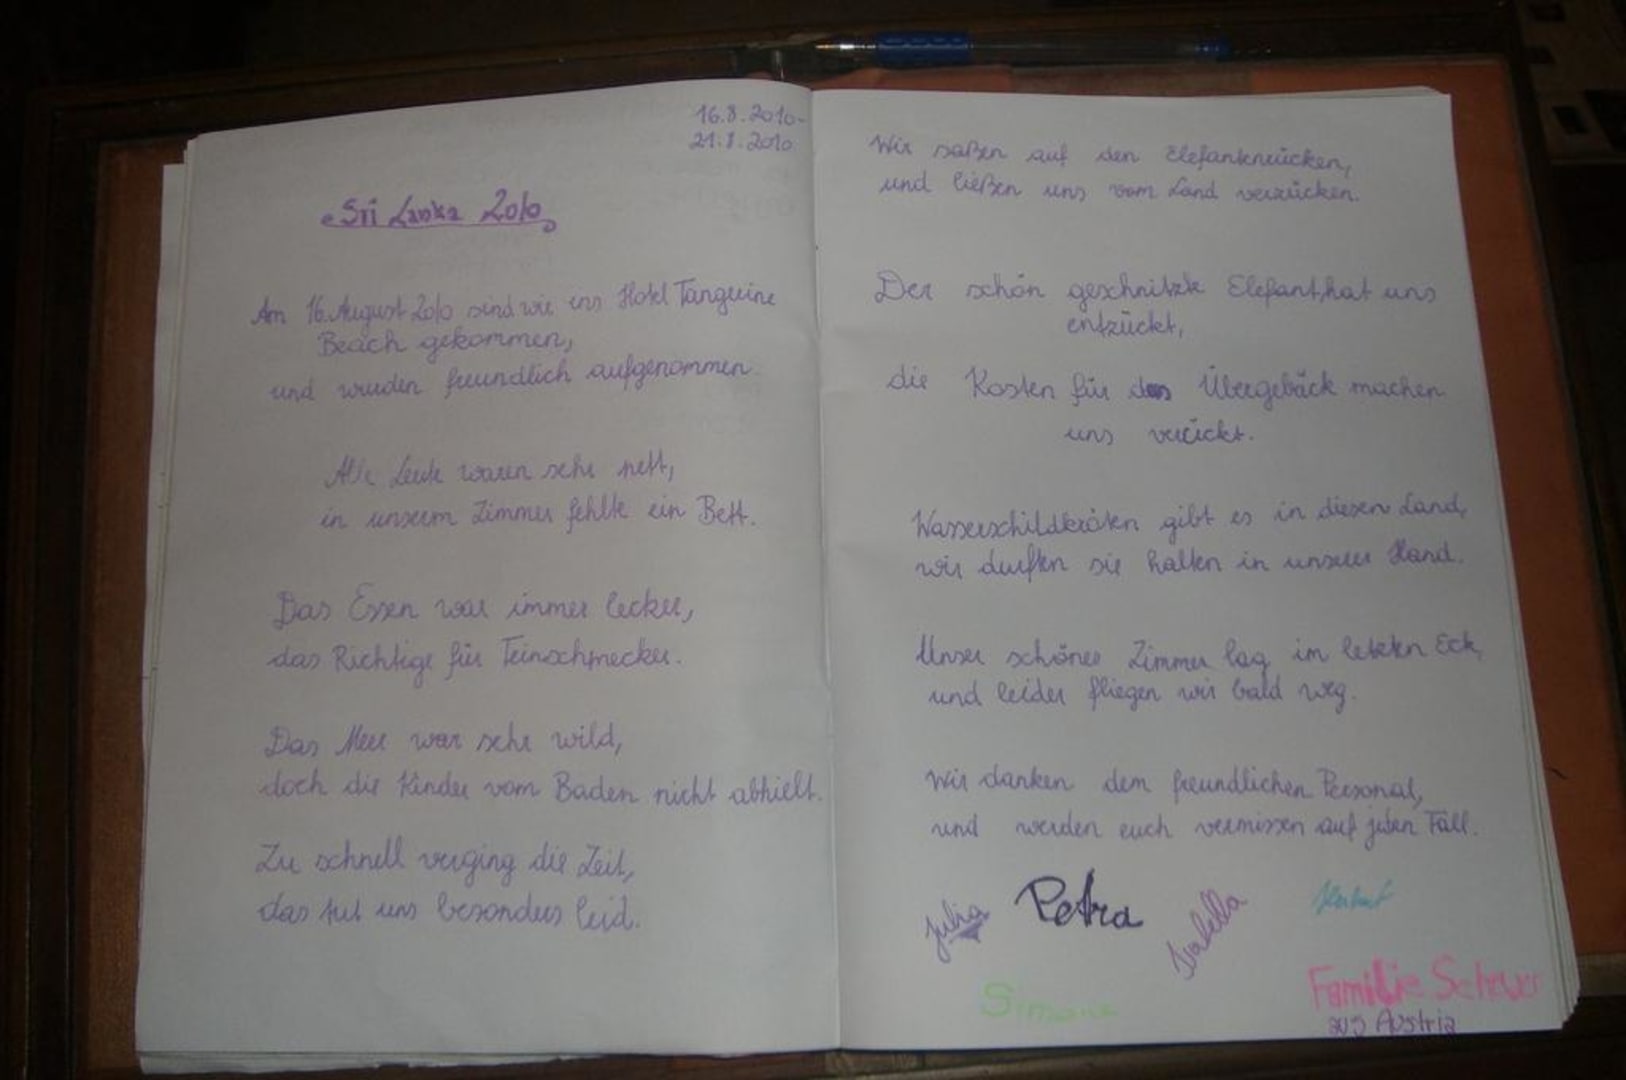 16.8.2010-
21.8.2010
Sri Lanka 2010
Am 16. August 2010 sind wir ins Hotel Tangerine
Beach gekommen,
und wurden freundlich aufgenommen.
Alle Leute waren sehr nett,
in unserem Zimmer fehlte ein Bett.
Das Essen war immer lecker,
das Richtige für Feinschmecker.
Das Meer war sehr wild,
doch die Kinder vom Baden nicht abhielt.
Zu schnell verging die Zeit,
das tut uns besonders leid.
Wir saßen auf den Elefantenrücken,
und ließen uns vom Land verzücken.
Der schön geschnitzte Elefant, hat uns
entzückt,
die Kosten für das Übergebäck machen
uns verückt.
Wasserschildkröten gibt es in diesen Land,
wir durften sie halten in unserer Hand.
Unser schönes Zimmer lag im letzten Eck,
und leider fliegen wir bald weg.
Wir danken dem freundlichen Personal,
und werden euch vermissen auf jeden Fall.
Julia Petra Isabella
Simone
Familie
aus Austria